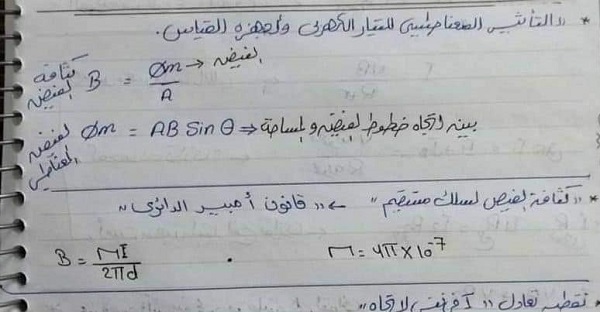 * "التأثير المغناطيسي للتيار الكهربي وأجهزة القياس.
كثافة الفيض B = Øm/A → الفيض
الفيض المغناطيسي Øm = AB Sin θ ⇒ بين اتجاه خطوط الفيض والمساحة
* "كثافة الفيض لسلك مستقيم" ← "قانون أمبير الدائري"
B = MI/2πd . M = 4π×10⁻⁷
* نقطة تعادل "آخر نفس الاتجاه"